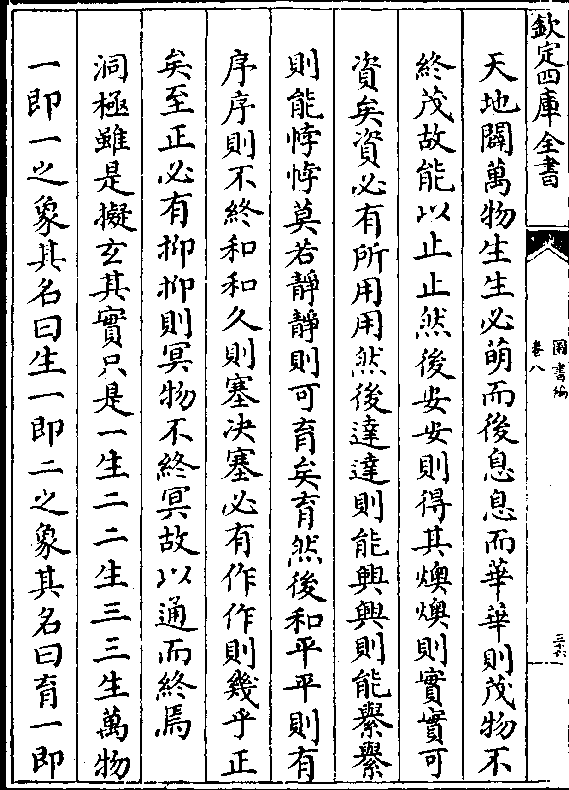 欽定四庫全書
圖書編
卷八
三六
天地闢萬物生生必萌而後息息而華華則茂物不
終茂故能以止止然後安安則得其燠燠則實實可
資矣資必有所用用然後達達則能興興則能縏縏
則能悖悖莫若靜靜則可育矣育然後和平平則有
序序則不終和和久則塞决塞必有作作則幾乎正
矣至正必有抑抑則冥物不終冥故以通而終焉
洞極雖是擬玄其實只是一生二二生三三生萬物
一即一之象其名曰生一即二之象其名曰育一即